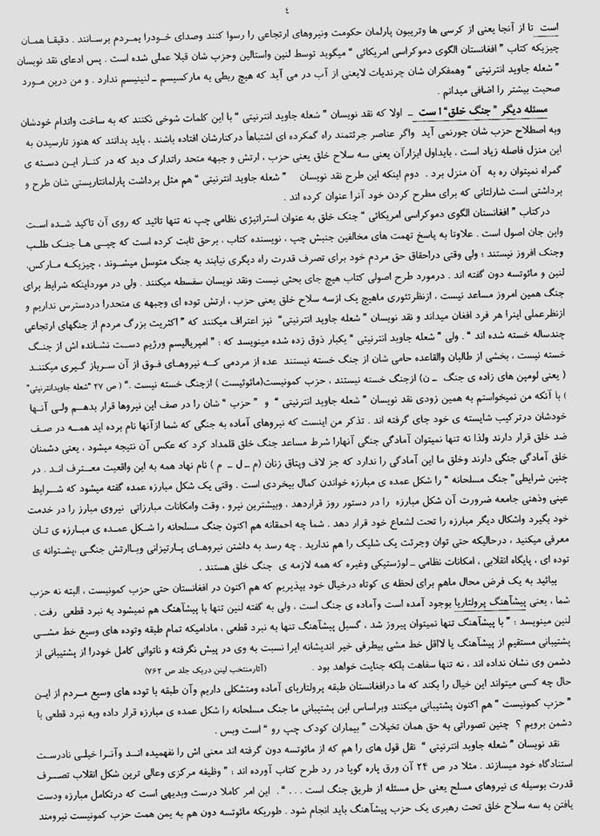 ٤
است تا از آنجا یعنی از کرسی ها وتریبون پارلمان حکومت ونیروهای ارتجاعی را رسوا کنند وصدای خودرا بمردم برسانند . دقیقا همان
چیزیکه کتاب " افغانستان الگوی دموکراسی امریکائی " میگوید توسط لنین واستالین وحزب شان قبلا عملی شده است . پس ادعای نقد نویسان
" شعله جاوید انترنیتی " وهمفکران شان چرندیات لایعنی از آب در می آید که هیچ ربطی به مارکسیسم ـ لنینیسم ندارد . و من درین مورد
صحبت بیشتر را اضافی میدانم .
مسئله دیگر " جنگ خلق " است ـ اولا که نقد نویسان " شعله جاوید انترنیتی " با این کلمات شوخی نکنند که به ساخت واندام خودشان
وبه اصطلاح حزب شان جورنمی آید واگر عناصر جرئتمند راه گمکرده ای اشتباهاً درکنارشان افتاده باشند ، باید بدانند که هنوز تارسیدن به
این منزل فاصله زیاد است . بایداول ابزارآن یعنی سه سلاح خلق یعنی حزب ، ارتش و جبهه متحد راتدارک دید که در کنار این دسته ی
گمراه نمیتوان ره به آن منزل برد . دوم اینکه این طرح نقد نویسان " شعله جاوید انترنیتی " هم مثل برداشت پارلمانتاریستی شان طرح و
برداشتی است شارلتانی که برای مطرح کردن خود آنرا عنوان کرده اند .
درکتاب " افغانستان الگوی دموکراسی امریکائی " جنگ خلق به عنوان استراتیژی نظامی چپ نه تنها تائید که روی آن تاکید شده است
واین جان اصول است . علاوتا به پاسخ تهمت های مخالفین جنبش چپ ، نویسنده کتاب ، برحق ثابت کرده است که چپی ها جنگ طلب
وجنگ افروز نیستند ؛ ولی وقتی دراحقاق حق مردم خود برای تصرف قدرت راه دیگری نیابند به جنگ متوسل میشوند ، چیزیکه مارکس،
لنین و مائوتسه دون گفته اند . درمورد طرح اصولی کتاب هیچ جای بحثی نیست ونقد نویسان سفسطه میکنند . ولی در مورداینکه شرایط برای
جنگ همین امروز مساعد نیست ، ازنظرتئوری ماهیچ یک ازسه سلاح خلق یعنی حزب ، ارتش توده ای وجبهه ی متحدرا دردسترس نداریم و
ازنظرعملی اینرا هر فرد افغان میداند و نقد نویسان " شعله جاوید انترنیتی" نیز اعتراف میکنند که " اکثریت بزرگ مردم از جنگهای ارتجاعی
چندساله خسته شده اند " . ولی " شعله جاوید انترنیتی " یکبار ذوق زده شده مینویسد که : " امپریالیسم ورژیم دست نشانده اش از جنگ
خسته نیست ، بخشی از طالبان والقاعده حامی شان از جنگ خسته نیستند عده از مردمی که نیروهای فوق از آن سرباز گیری میکنند
( یعنی لومپن های زاده ی جنگ ـ ن) ازجنگ خسته نیستند ، حزب کمونیست(مائوئیست ) ازجنگ خسته نیست ." ( ص ٢٧ "شعله جاویدانترنیتی"
) با آنکه من نمیخواستم به همین زودی نقد نویسان " شعله جاوید انترنیتی " و " حزب " شان را در صف این نیروها قرار بدهم ولی آنها
خودشان درترکیب شایسته ی خود جای گرفته اند . تذکر من اینست که نیروهای آماده به جنگی که شما ازآنها نام برده اید همه در صف
ضد خلق قرار دارند ولذا نه تنها نمیتوان آمادگی جنگی آنهارا شرط مساعد جنگ خلق قلمداد کرد که عکس آن نتیجه میشود ، یعنی دشمنان
خلق آمادگی جنگی دارند وخلق ما این آمادگی را ندارد که جز لاف وپتاق زنان (م ـ ل ـ م ) نام نهاد همه به این واقعیت معترف اند . در
چنین شرایطی" جنگ مسلحانه " را شکل عمده ی مبارزه خواندن کمال بیخردی است . وقتی یک شکل مبارزه عمده گفته میشود که شرایط
عینی وذهنی جامعه ضرورت آن شکل مبارزه را در دستور روز قراردهد ، وبیشترین نیرو ، وقت وامکانات مبارزاتی نیروی مبارز را در خدمت
خود بگیرد واشکال دیگر مبارزه را تحت لشعاع خود قرار دهد . شما چه احمقانه هم اکنون جنگ مسلحانه را شکل عمده ی مبارزه ی تان
معرفی میکنید ، درحالیکه حتی توان وجرئت یک شلیک را هم ندارید . چه رسد به داشتن نیروهای پارتیزانی وباارتش جنگی ،پشتوانه ی
توده ای ، پایگاه انقلابی ، امکانات نظامی ـ لوژستیکی وغیره که همه لازمه ی جنگ خلق هستند .
بیائید به یک فرض محال ماهم برای لحظه ی کوتاه درخیال خود بپذیریم که هم اکنون در افغانستان حتی حزب کمونیست ، البته نه حزب
شما ، یعنی پیشآهنگ پرولتاریا بوجود آمده است وآماده ی جنگ است ، ولی به گفته لنین تنها با پیشآهنگ هم نمیشود به نبرد قطعی رفت .
لنین مینویسد : " با پیشآهنگ تنها نمیتوان پیروز شد ، گسیل پیشآهنگ تنها به نبرد قطعی ، مادامیکه تمام طبقه وتوده های وسیع خط مشی
پشتیبانی مستقیم از پیشآهنگ یا لااقل خط مشی بیطرفی خیر اندیشانه ایرا نسبت به وی در پیش نگرفته و ناتوانی کامل خودرا از پشتیبانی از
دشمن وی نشان نداده اند ، نه تنها سفاهت بلکه جنایت خواهد بود . (آثارمنتخب لینن دریک جلد ص ٧٦٢)
حال چه کسی میتواند این خیال را بکند که ما درافغانستان طبقه پرولتاریای آماده ومتشکلی داریم وآن طبقه با توده های وسیع مردم از این
" حزب کمونیست " هم اکنون پشتیبانی میکنند وبراساس این پشتیبانی ما جنگ مسلحانه را شکل عمده ی مبارزه قرار داده وبه نبرد قطعی با
دشمن برویم ؟ چنین تصوراتی به حق همان تخیلات " بیماران کودک چپ رو " است وبس .
نقد نویسان " شعله جاوید انترنیتی " نقل قول های را هم که از مائوتسه دون گرفته اند معنی اش را نفهمیده اند وآنرا خیلی نادرست
استنادگاه خود میسازند . مثلا در ص ٢٤ آن ورق پاره گویا در رد طرح کتاب آورده اند : " وظیفه مرکزی وعالی ترین شکل انقلاب تصرف
قدرت بوسیله ی نیروهای مسلح یعنی حل مسئله از طریق جنگ است . . . " . این امر کاملا درست وبدیهی است که درتکامل مبارزه ودست
یافتن به سه سلاح خلق تحت رهبری یک حزب پیشآهنگ باید انجام شود . طوریکه مائوتسه دون هم به یمن همت حزب کمونیست نیرومند